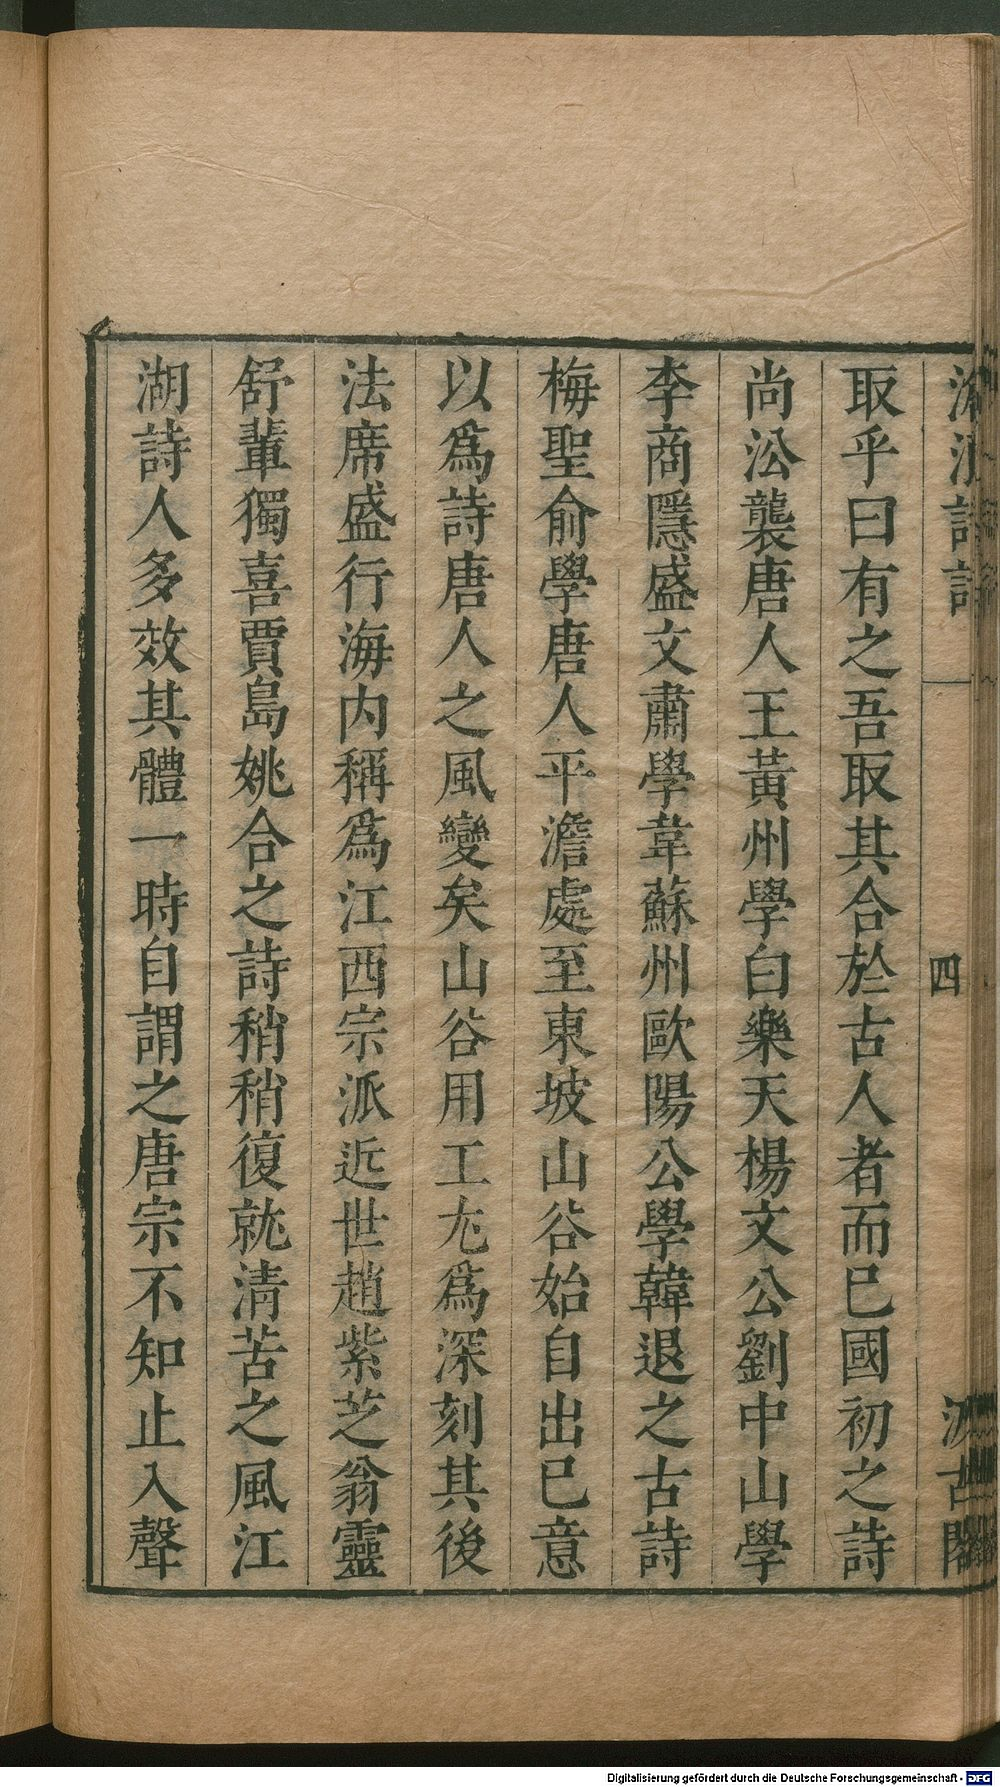 滄浪詩話
四
汲古閣
取乎曰有之吾取其合於古人者而已國初之詩
尚㳂襲唐人王黃州學白樂天楊文公劉中山學
李商隱盛文肅學韋蘇州歐陽公學韓退之古詩
梅聖俞學唐人平澹處至東坡山谷始自出已意
以爲詩唐人之風變矣山谷用工尢爲深刻其後
法席盛行海内稱爲江西宗派近世趙紫芝翁靈
舒輩獨喜賈島姚合之詩稍稍復就淸苦之風江
湖詩人多效其體一時自謂之唐宗不知止入聲
Digitalisierung gefördert durch die Deutsche Forschungsgemeinschaft - DFG